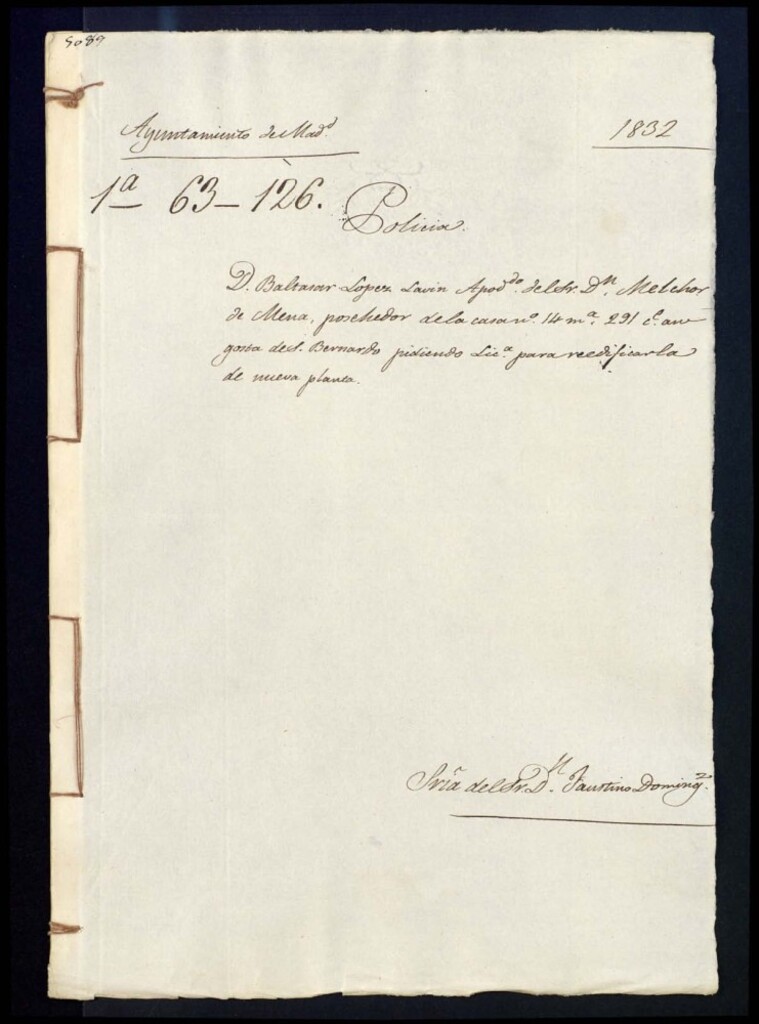 5089
Ayuntamiento de Madd.
1832
1a 63-126.
Policia.
D. Baltasar Lopez Lavin Apoddo. del Sr. Dn. Melchor
de Mena, poschedor de la casa no. 14 ma. 291 ce. an-
gosta de S. Bernardo pidiendo Lica. para reedificarla
de nueva planta.
Sria. del Sr. Dn. Faustino Domingz.